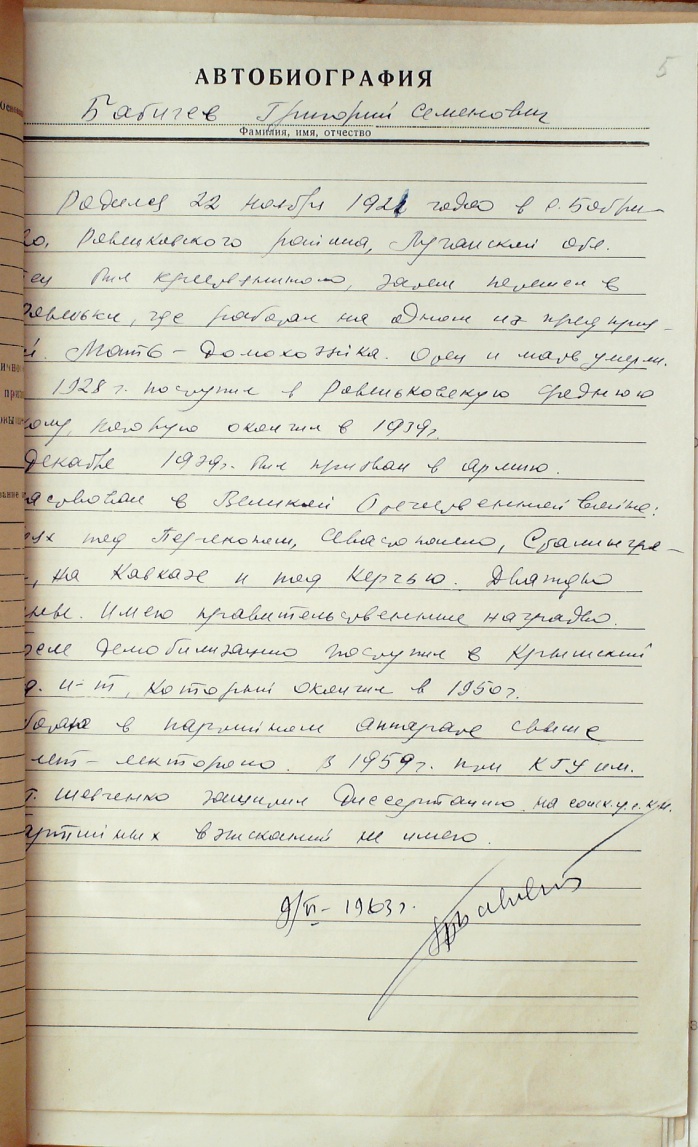 5
АВТОБИОГРАФИЯ
Бабичев Григорий Семенович
Фамилия, имя, отчество
Родился 22 ноября 1921 года в с. Бобри-
во, Ровеньковского района, Луганской обл.
ец был крестьянином, затем перешел в
Ровеньки, где работал на одном из предприя-
й. Мать - домохозяйка. Отец и мать умерли.
1928 г. поступил в Ровеньковскую среднюю
колу, которую окончил в 1939г.
декабре 1939г. был призван в армию.
аствовал в Великой Отечественной войне:
ях под Перекопом, Севастополем, Сталингра-
, на Кавказе и под Керчью. Дважды
нен. Имею правительственные награды.
осле демобилизации поступил в Крымский
д. ин-т, который окончил в 1950г.
ботал в партийном аппарате свыше
лет - лектором. В 1959г. при КГУ им.
Т. Шевченко защитил диссертацию на соиск. уч.
артийных взысканий не имею.
9/VI - 1963 г.